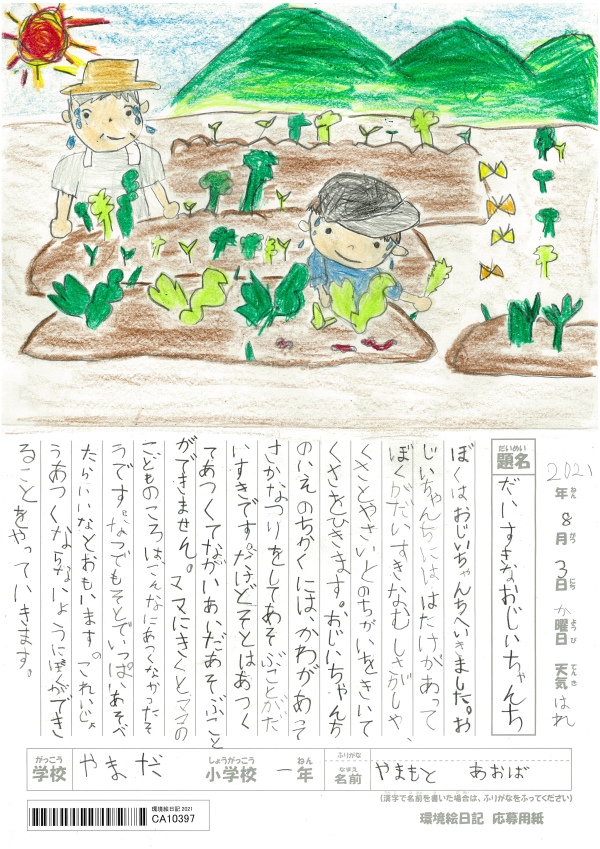 2021年8月3日か曜日 天気はれ
ねん
がつ
にち
ようび
てんき
だいめい
題名
だいすきなおじいちゃんち
ぼくはおじいちゃんちへいきました。お
じいちゃんちにははたけがあって
ぼくがだいすきなむしさがしや、
くさとやさいとのちがいをきいて
くさをひきます。おじいちゃんち
のいえのちかくには、かわがあって
さかなつりをしてあそぶことがだ
いすきです。だけどそとはあつく
てあつくてながいあいだあそぶこと
ができません。ママにきくとママの
こどものころは、こんなにあつくなかったそ
うです。なつでもそとでいっぱいあそべ
たらいいなとおもいます。これいじょ
うあつくならないようにぼくができ
ることをやっていきます。
がっこう
学校
やまだ
しょうがっこう
小学校
一
ねん
年
ふりがな
なまえ
名前
やまもと あおば
(漢字で名前を書いた場合は、ふりがなをふってください)
環境絵日記 2021
CA10397
環境絵日記 応募用紙